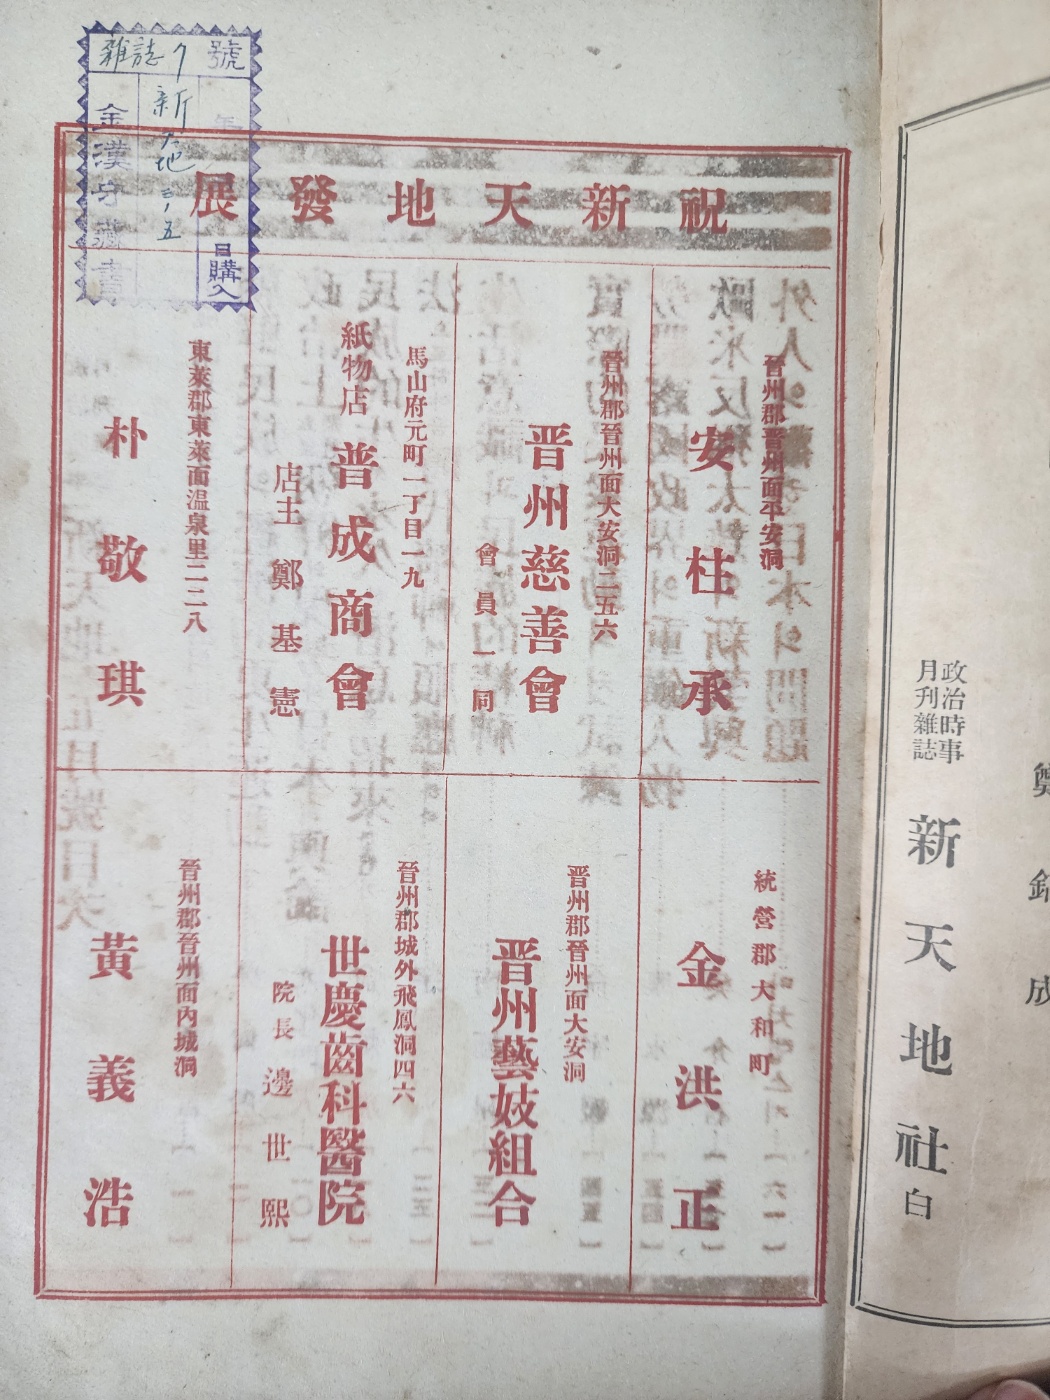 雜誌 號
新天地 三ノ五
金漢 藏書
購入
祝新天地發展
晉州郡晉州面平安洞
安柱承
晉州郡晉州面大安洞二五六
晋州慈善會
會員一同
馬山府元町一丁目一九
紙物店 普成商會
店主 鄭基憲
東萊郡東萊面温泉里二二八
朴敬琪
統營郡大和町
金洪正
晋州郡晉州面大安洞
晋州藝妓組合
晉州郡城外飛鳳洞四六
世慶齒科醫院
院長 邊世熙
晉州郡晉州面內城洞
黃義浩
成
政治時事
月刊雜誌
新天地社 白